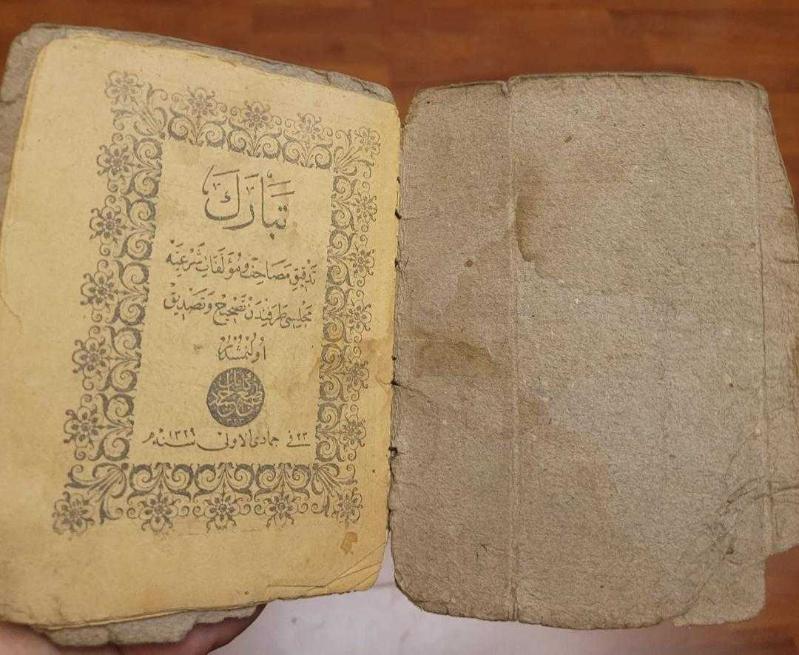 تَبَارَكَ
تدقیق مصاحف و مؤلفات شرعیه
مجلسی طرفندن تصحیح و تصدیق
اولنمشدر
فی ٢٣ جمادی الاولی سنه ١٣٢٩